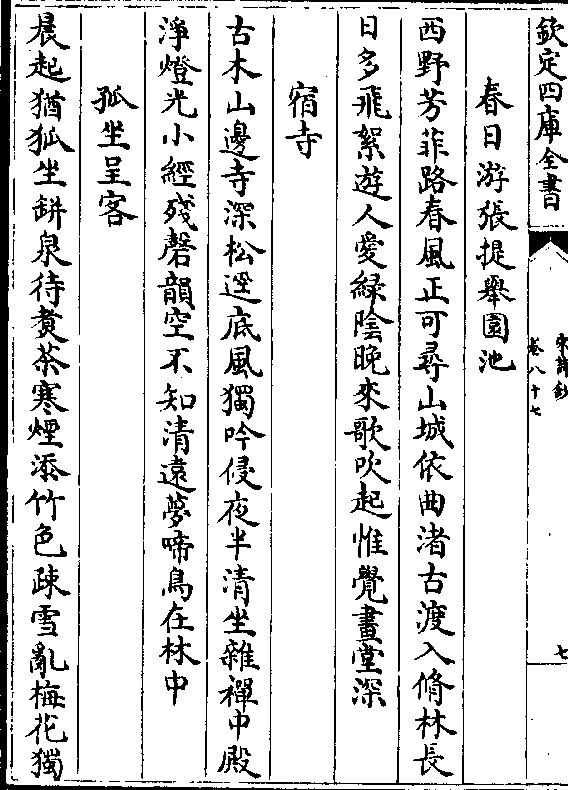 欽定四庫全書
宋詩鈔
卷八十七
七
春日游張提舉園池
西野芳菲路春風正可尋山城依曲渚古渡入脩林長
日多飛絮遊人愛緑陰晚來歌吹起惟覺畫堂深
宿寺
古木山邊寺深松逕底風獨吟侵夜半清坐雜禪中殿
淨燈光小經殘磬韻空不知清遠夢啼鳥在林中
孤坐呈客
晨起猶孤坐缾泉待煑茶寒煙添竹色疎雪亂梅花獨